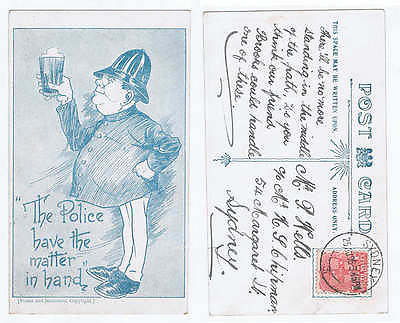 "The Police
have the
matter
in hand,"
there'll be no more
standing in the middle
of the path. Do you
think our friend
Brooks could handle
one of these.
THIS SPACE MAY BE WRITTEN UPON.
POST CARD
ADDRESS ONLY
Mr P. Wells
c/o Mr H. J. Chipman
54 Margaret St.
Sydney.
SYDNEY